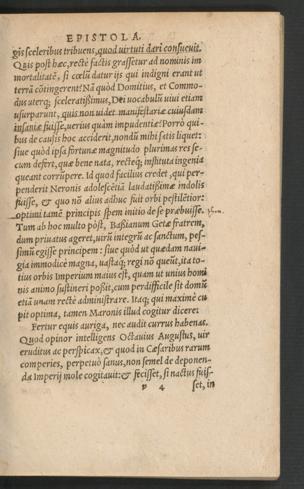 EPISTOLA.
gis sceleribus tribuens, quod uirtuti dari consueuit.
Quis post hæc, rectè factis grassetur ad nominis im
mortalitatē, si cœlū datur ijs qui indigni erant ut
terrā cōtingerent? Nā quòd Domitius, et Commo-
dus uterq; sceleratißimus, Dei uocabulū uiui etiam
usurparunt, quis non uidet manifestariæ cuiusdam
insaniæ fuisse, uerius quàm impudentiæ? Porrò qui-
bus de causis hoc acciderit, nondū mihi satis liquet:
siue quòd ipsa fortunæ magnitudo plurimas res se-
cum defert, quæ bene nata, recteq; instituta ingenia
queant corrūpere. Id quod facilius credet, qui per-
penderit Neronis adolescētiā laudatißimæ indolis
fuisse, & quo nō alius adhuc fuit orbi pestilētior:
optimi tamē principis spem initio de se præbuisse.
Tum ab hoc multo pòst, Baßianum Getæ fratrem,
dum priuatus ageret, uirū integrū ac sanctum, pes-
simū egisse principem: siue quòd ut quædam naui-
gia immodicè magna, uastaq; regi nō queūt, ita to-
tius orbis Imperium maius est, quàm ut unius homi
nis animo sustineri poßit, cum perdifficile sit domū
etiā unam rectè administrare. Itaq; qui maximè cu
pit optima, tamen Maronis illud cogitur dicere:
Fertur equis auriga, nec audit currus habenas.
Quod opinor intelligens Octauius Augustus, uir
eruditus ac perspicax, & quod in Cæsaribus rarum
comperies, perpetuò sanus, non semel de deponen-
da Imperij mole cogitauit: & fecisset, si nactus fuis-
p 4
set, in